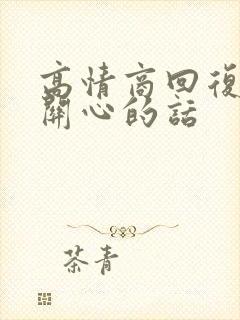 高情商回復
開心的話
茶青